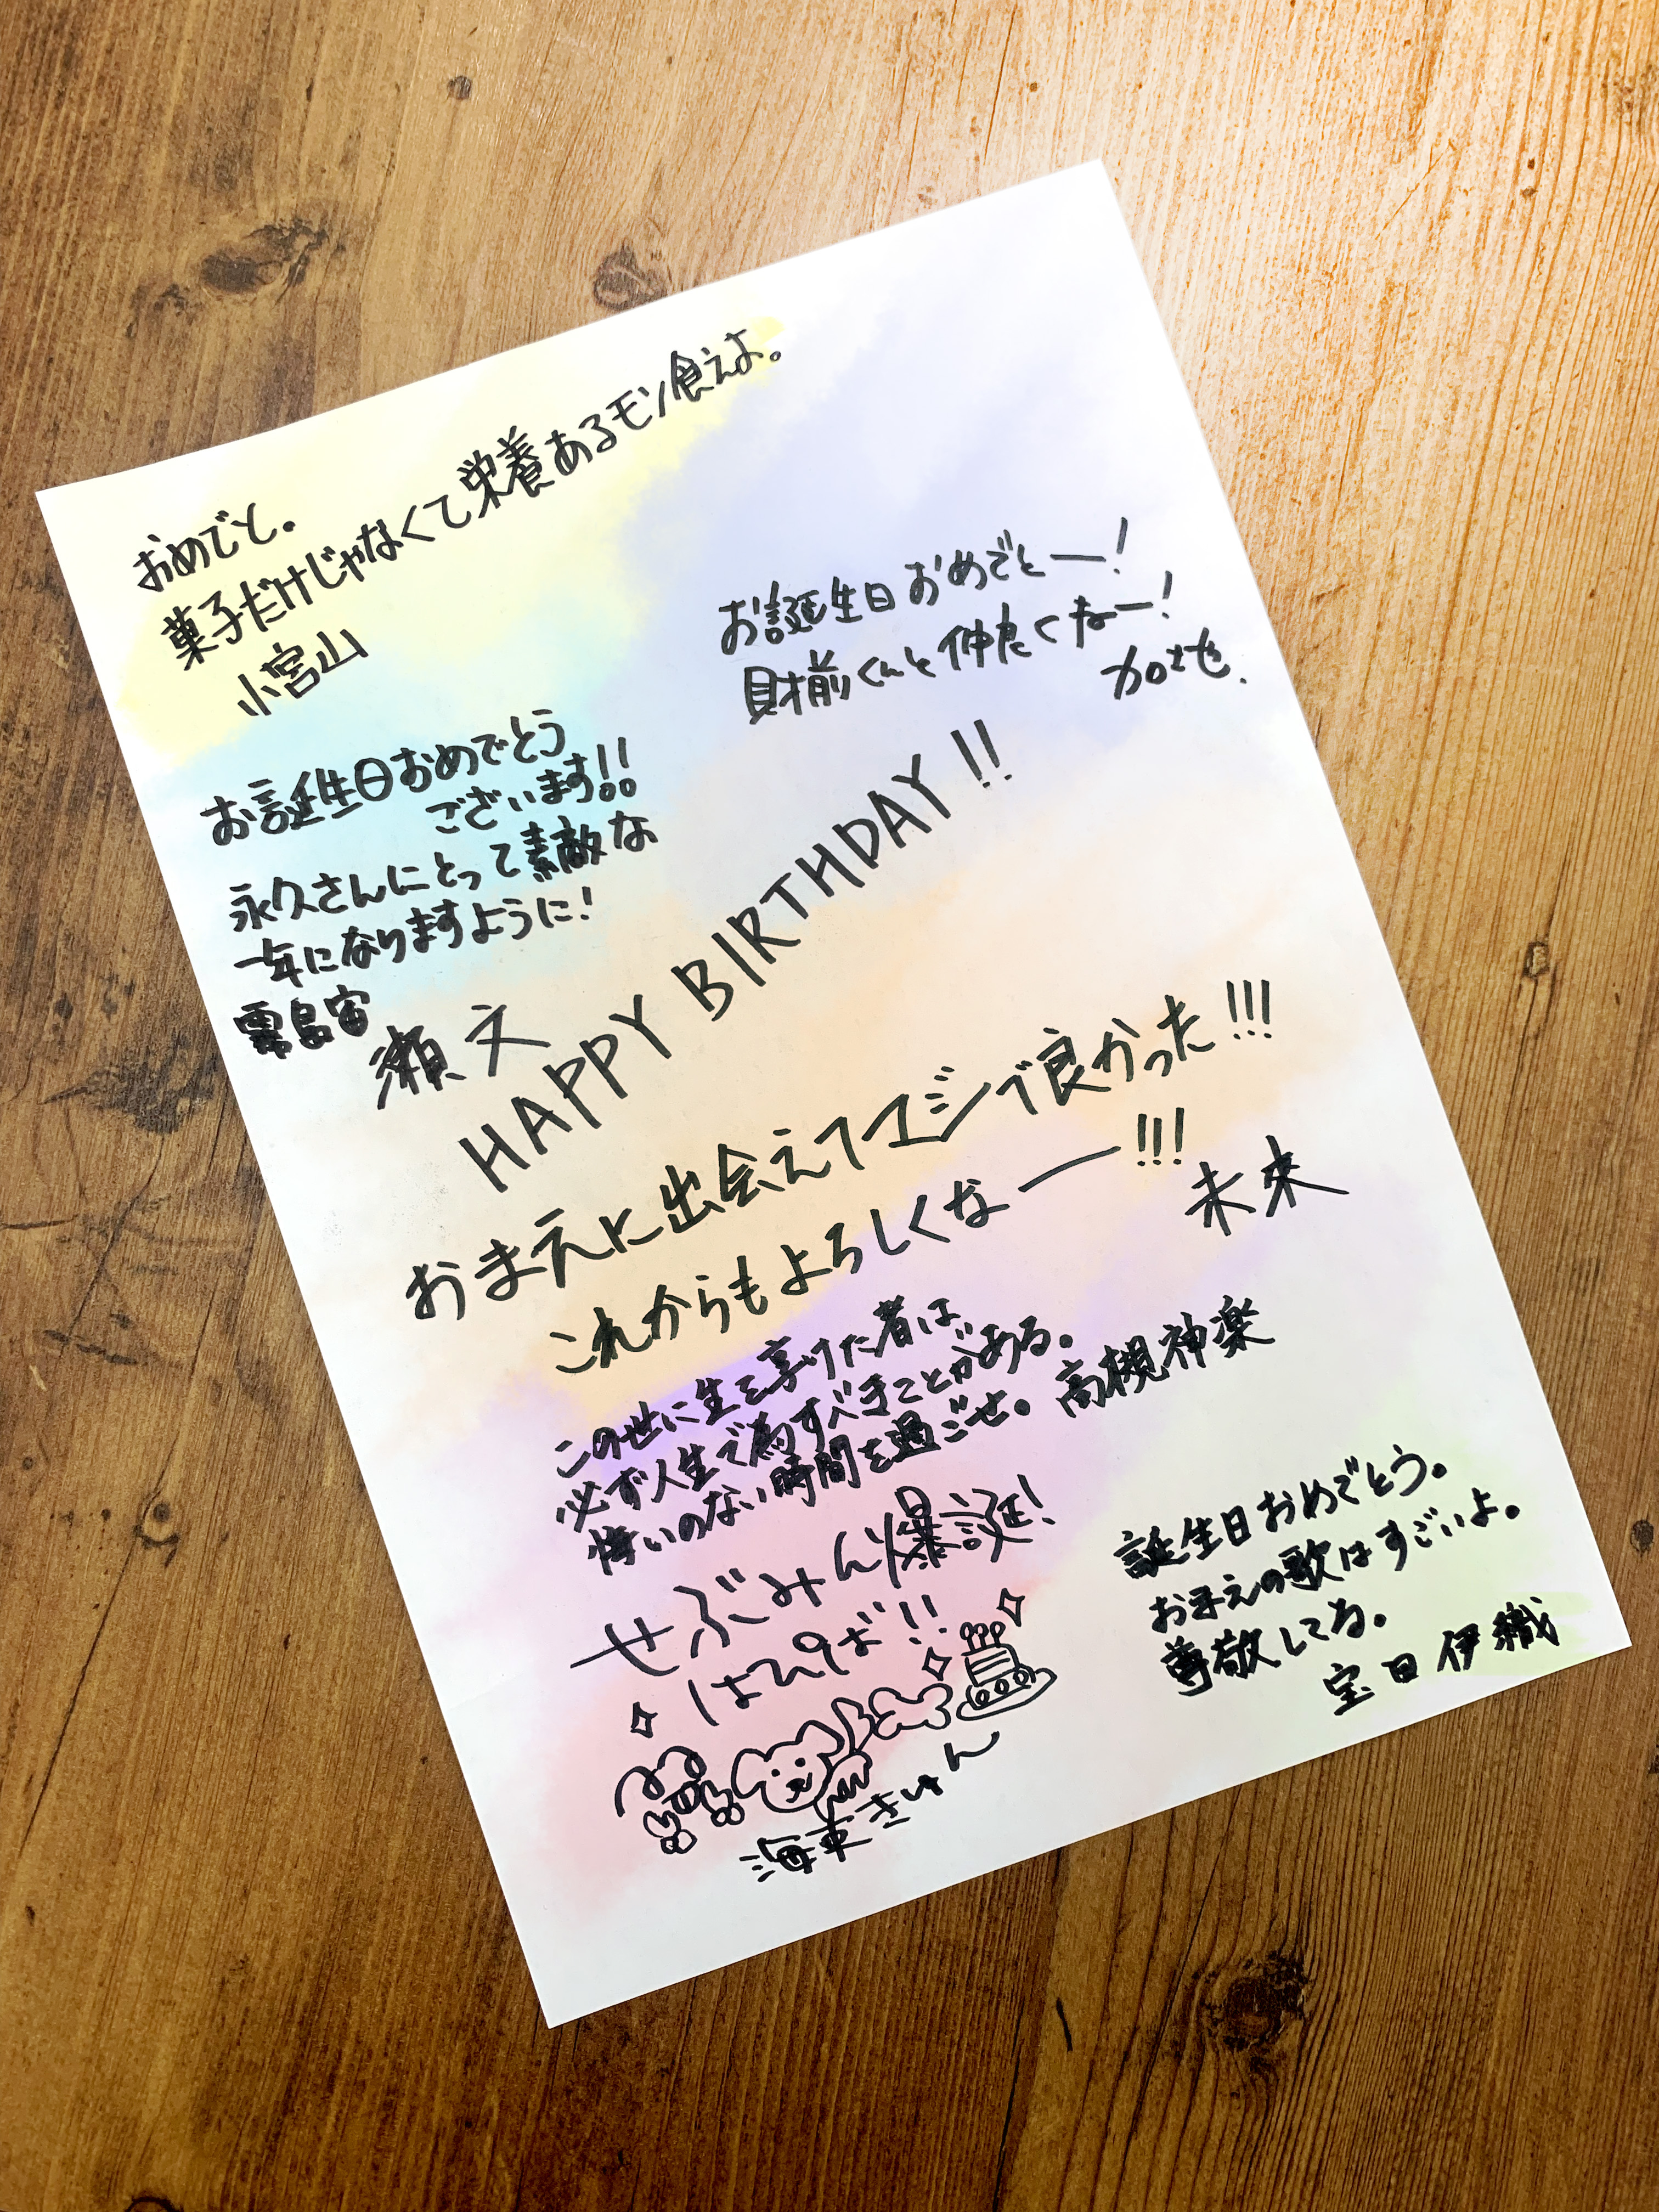 おめでと。
菓子だけじゃなくて栄養あるモン食えよ。
小宮山
お誕生日おめでとー！
財前くんと仲良くねー！
加地.
お誕生日おめでとう
ございます!!
永久さんにとって素敵な
一年になりますように！
霧島宙
瀬文
HAPPY BIRTHDAY!!
おまえに出会えてマジで良かった!!!
これからもよろしくなー!!!
未来
この世に生を享けた者は、
必ず人生で為すべきことがある。
悔いのない時間を過ごせ。高槻神楽
せぶみん爆誕！
はぴば!!
海東きゅん
誕生日おめでとう。
おまえの歌はすごいよ。
尊敬してる。
宝田伊織